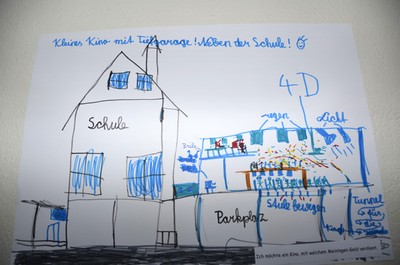 Kleines Kino mit Tiefgarage! Neben der Schule!
4-D
Licht
Schule
Stüle bewegen
Parkplatz
Tunnel
für
die
Ich möchte ein Kino, mit welchem Meiningen Geld verdient